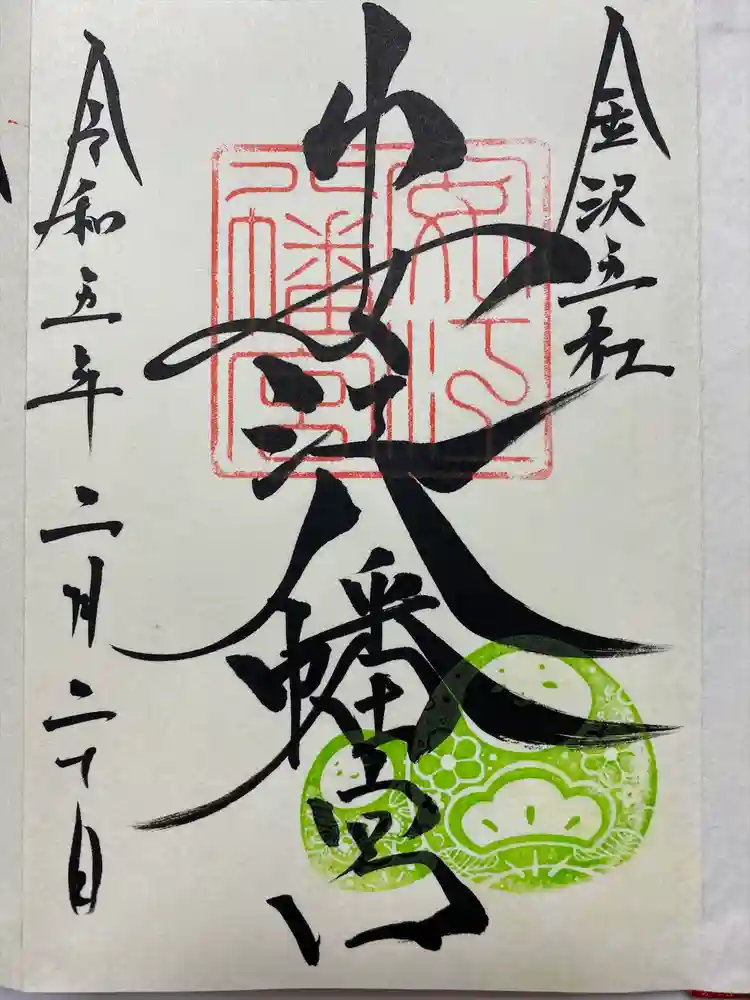 金沢五社
安江八幡宮
安江
八幡宮
令和五年二月二十日